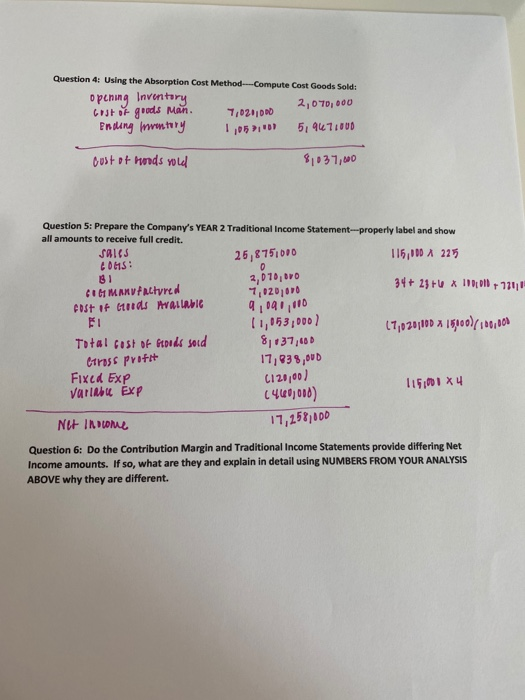 Question 4: Using the Absorption Cost Method----Compute Cost Goods Sold:
opening Inventory 2,070,000
Cost of goods Man. 7,020,000
Ending Inventory 1,053,000 5,967,000
Cost of Goods sold 8,037,000
Question 5: Prepare the Company's YEAR 2 Traditional Income Statement---properly label and show
all amounts to receive full credit.
Sales 25,875,000 115,000 x 225
COGS: 0
BI 2,070,000
COG Manufactured 7,020,000 34 + 23 + 6 x 100,000 +
Cost of Goods Available 9,090,000
EI (1,053,000) (7,020,000 x 15,000)/100,000
Total Cost of Goods sold 8,037,000
Gross Profit 17,838,000
Fixed Exp (120,00)
Variable Exp (460,000) 115,000 x 4
Net Income 17,258,000
Question 6: Do the Contribution Margin and Traditional Income Statements provide differing Net
Income amounts. If so, what are they and explain in detail using NUMBERS FROM YOUR ANALYSIS
ABOVE why they are different.